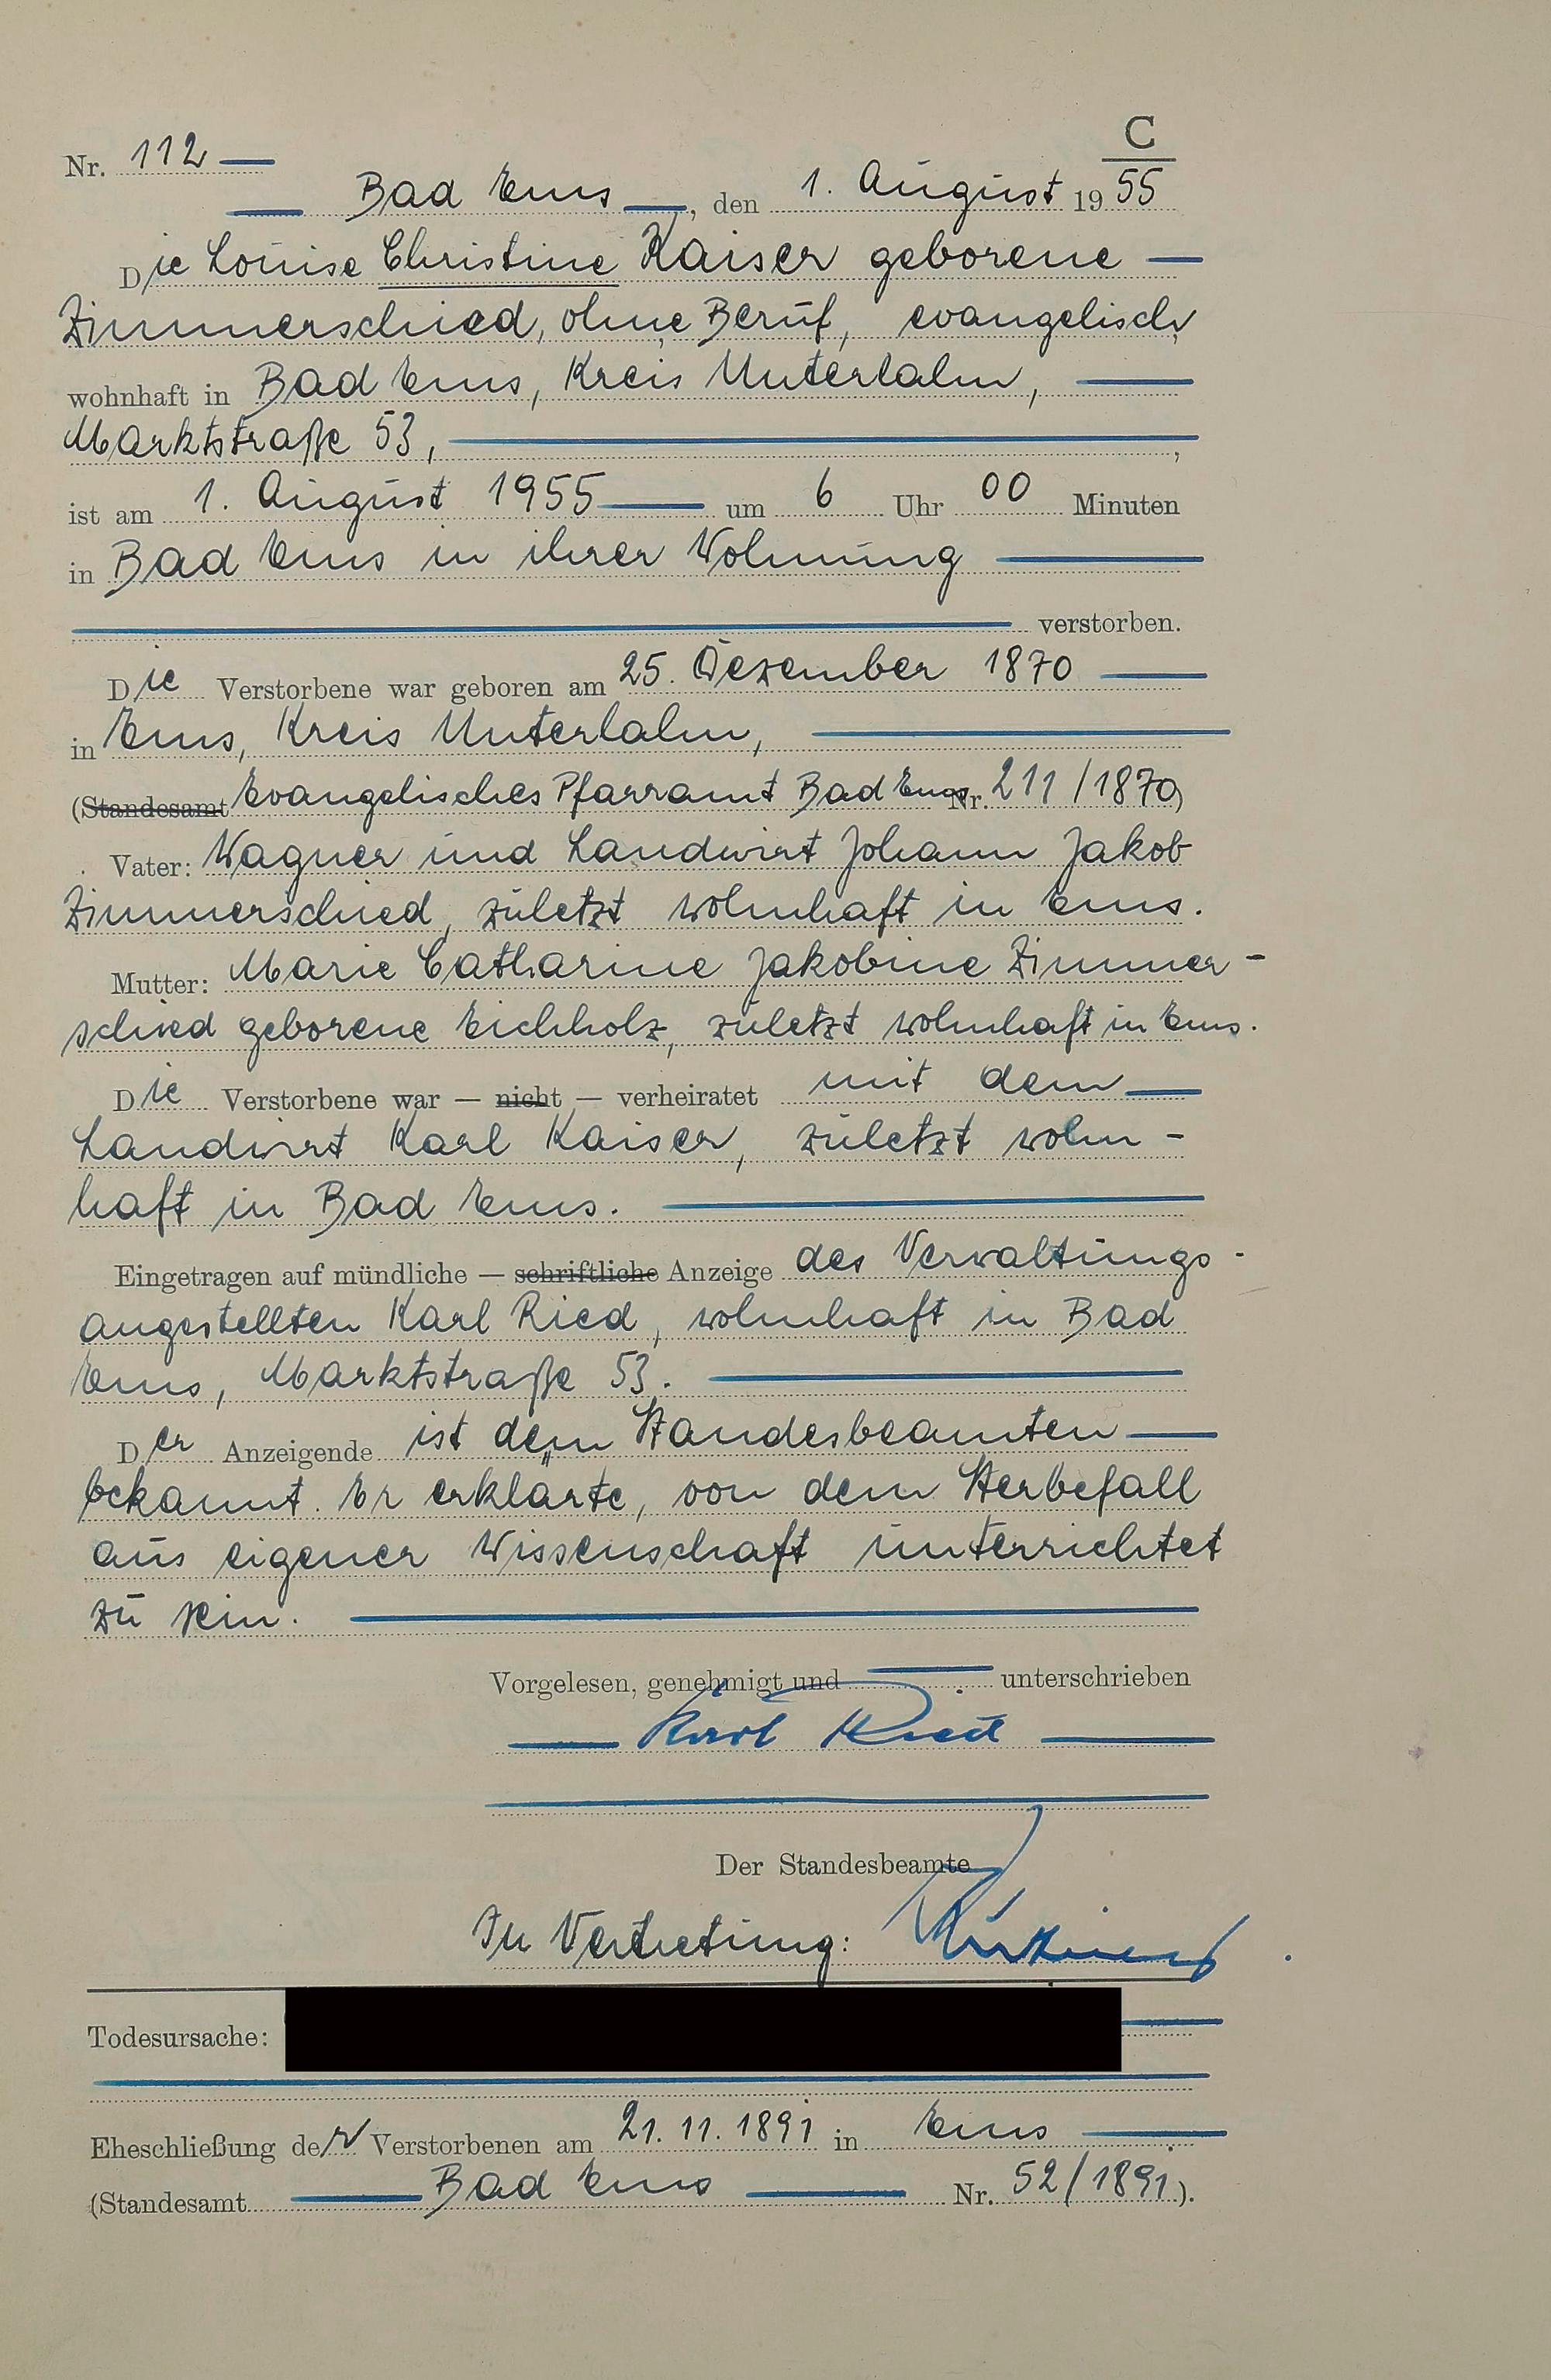 C
Nr. 112
Bad Ems, den 1. August 1955
Die Louise Christine Kaiser geborene
Zimmerschied, ohne Beruf, evangelisch,
wohnhaft in Bad Ems, Kreis Unterlahn,
Marktstraße 53,
ist am 1. August 1955 um 6 Uhr 00 Minuten
in Bad Ems in ihrer Wohnung
verstorben.
Die Verstorbene war geboren am 25. Dezember 1870
in Ems, Kreis Unterlahn,
(Standesamt Evangelisches Pfarramt Bad Ems Nr. 211/1870)
Vater: Wagner und Landwirt Johann Jakob
Zimmerschied, zuletzt wohnhaft in Ems.
Mutter: Marie Catharine Jakobine Zimmer-
schied geborene Eichholz, zuletzt wohnhaft in Ems.
Die Verstorbene war — nicht — verheiratet mit dem
Landwirt Karl Kaiser, zuletzt wohn-
haft in Bad Ems.
Eingetragen auf mündliche — schriftliche Anzeige des Verwaltungs-
angestellten Karl Ried, wohnhaft in Bad
Ems, Marktstraße 53.
Der Anzeigende ist dem Standesbeamten
bekannt. Er erklärte, von dem Sterbefall
aus eigener Wissenschaft unterrichtet
zu sein.
Vorgelesen, genehmigt und unterschrieben
Karl Ried
Der Standesbeamte
In Vertretung:
Todesursache:
Eheschließung der Verstorbenen am 21. 11. 1891 in Ems
(Standesamt Bad Ems Nr. 52/1891).